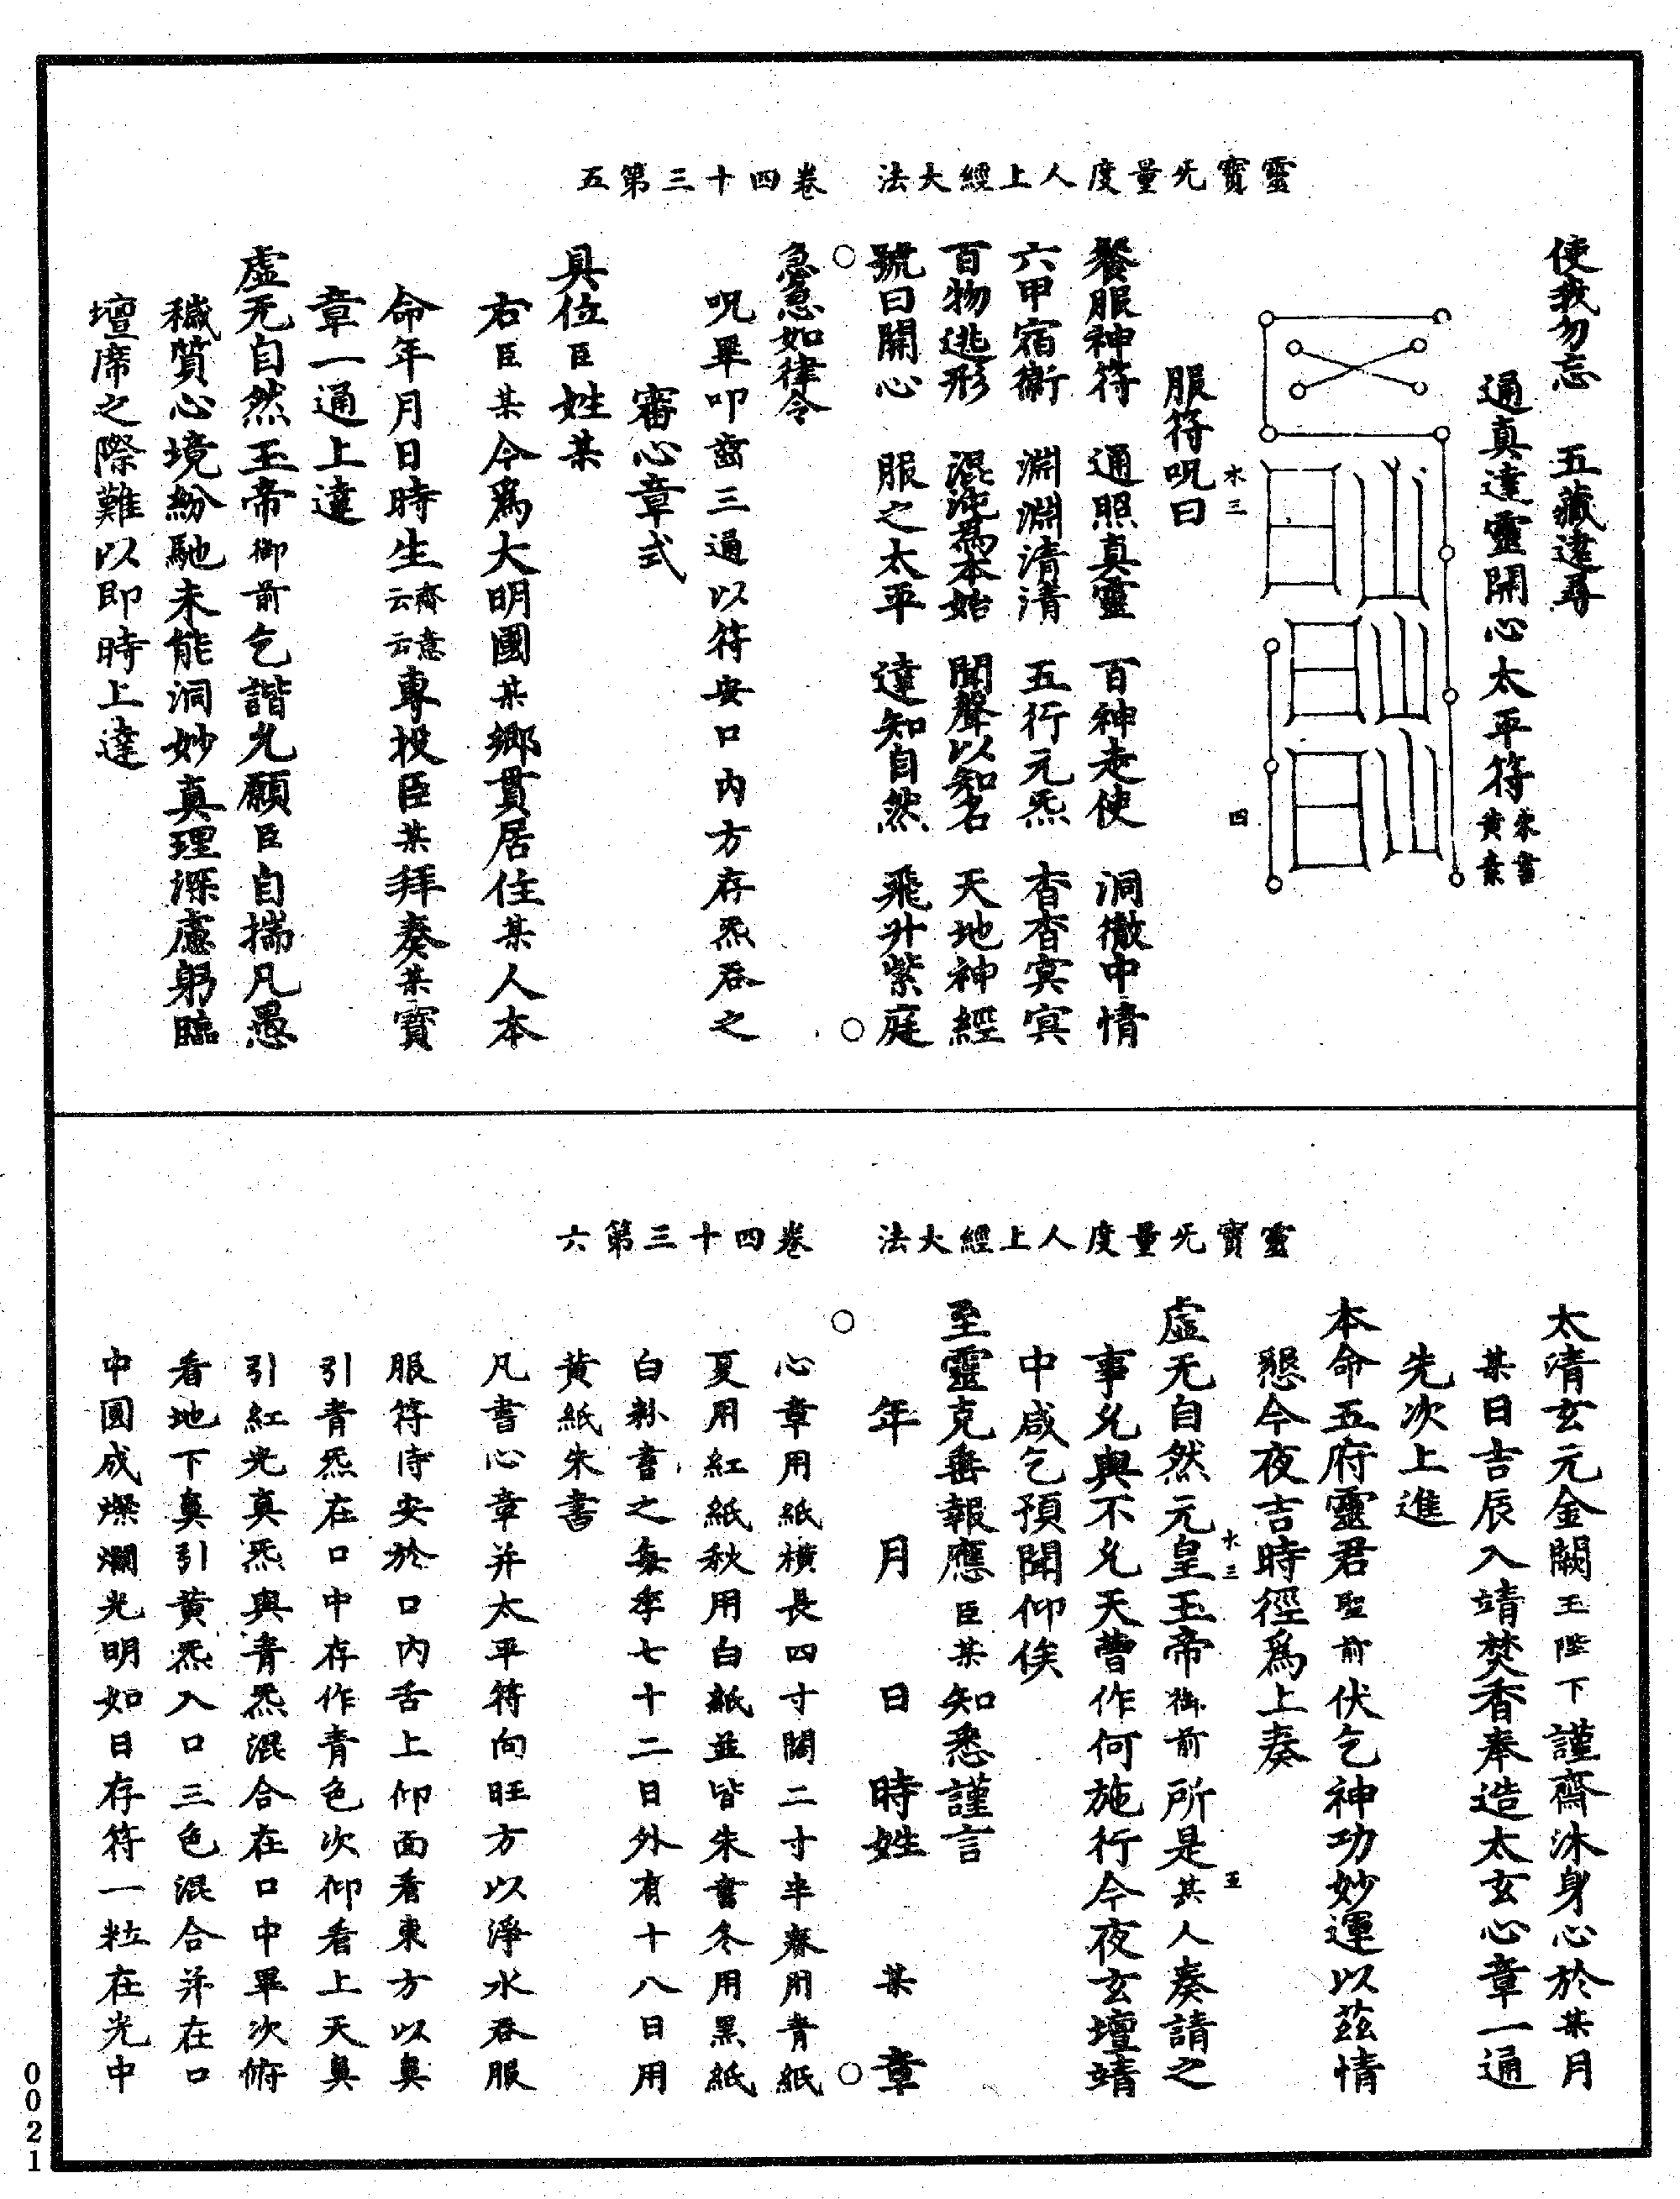 靈寶无量度人上經大法　卷四十三第五
使我勿忘　五藏逮尋
通真達靈開心太平符朱書黃素
木三　四
服符呪曰
餐服神符　通照真靈　百神走使　洞徹中情
六甲宿衛　淵淵清清　五行元炁　杳杳冥冥
百物逃形　混沌爲本始　聞聲以知名　天地神經
號曰開心　服之太平　達知自然　飛升紫庭
急急如律令
呪畢叩齒三通以符安口內方存炁吞之
審心章式
具位臣姓某
右臣某今爲大明國某鄉貫居住某人本
命年月日時生齋意云云專投臣某拜奏某寶
章一通上達
虛无自然玉帝御前乞諧允願臣自揣凡愚
穢質心境紛馳未能洞妙真理深慮躬臨
壇席之際難以即時上達
靈寶无量度人上經大法　卷四十三第六
太清玄元金闕玉陛下謹齋沐身心於某月
某日吉辰入靖焚香奉造太玄心章一通
先次上進
本命五府靈君聖前伏乞神功妙運以茲情
懇今夜吉時徑爲上奏
木三　五
虛无自然元皇玉帝御前所是某人奏請之
事允與不允天曹作何施行今夜玄壇靖
中咸乞預聞仰俟
至靈克垂報應臣某知悉謹言
年　月　日　時姓　某　章
心章用紙橫長四寸闊二寸半春用青紙
夏用紅紙秋用白紙並皆朱書冬用黑紙
白粉書之每季七十二日外有十八日用
黃紙朱書
凡書心章并太平符向旺方以淨水吞服
服符時安於口內舌上仰面看東方以鼻
引青炁在口中存作青色次仰看上天鼻
引紅光真炁與青炁混合在口中畢次俯
看地下鼻引黃炁入口三色混合并在口
中圓成燦爛光明如日存符一粒在光中
0021